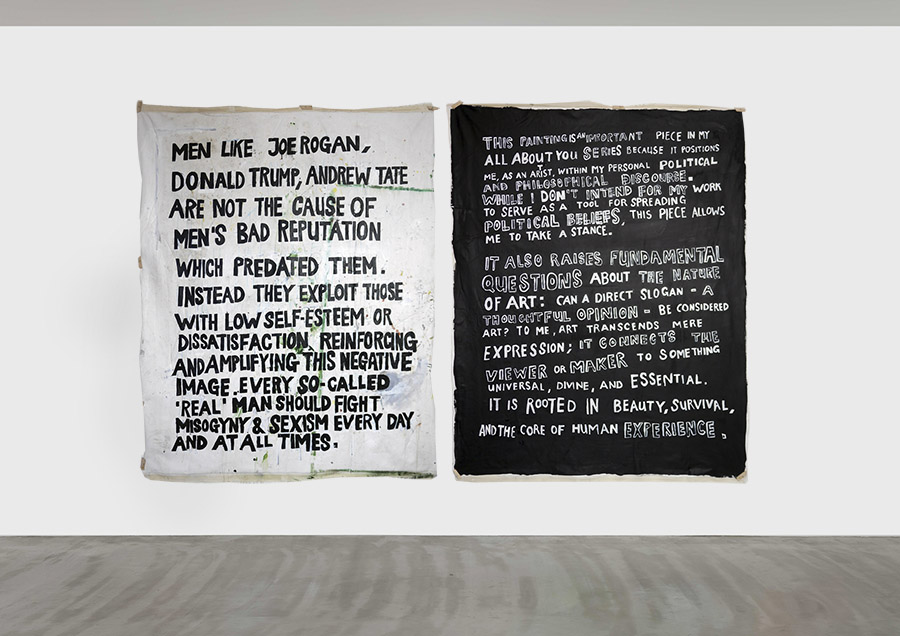 MEN LIKE JOE ROGAN,
DONALD TRUMP, ANDREW TATE
ARE NOT THE CAUSE OF
MEN'S BAD REPUTATION
WHICH PREDATED THEM.
INSTEAD THEY EXPLOIT THOSE
WITH LOW SELF-ESTEEM OR
DISSATISFACTION, REINFORCING
AND AMPLIFYING THIS NEGATIVE
IMAGE. EVERY SO-CALLED
'REAL' MAN SHOULD FIGHT
MISOGYNY & SEXISM EVERY DAY
AND AT ALL TIMES.
THIS PAINTING IS AN IMPORTANT PIECE IN MY
ALL ABOUT YOU SERIES BECAUSE IT POSITIONS
ME, AS AN ARTIST, WITHIN MY PERSONAL POLITICAL
AND PHILOSOPHICAL DISCOURSE.
WHILE I DON'T INTEND FOR MY WORK
TO SERVE AS A TOOL FOR SPREADING
POLITICAL BELIEFS, THIS PIECE ALLOWS
ME TO TAKE A STANCE.
IT ALSO RAISES FUNDAMENTAL
QUESTIONS ABOUT THE NATURE
OF ART: CAN A DIRECT SLOGAN - A
THOUGHTFUL OPINION - BE CONSIDERED
ART? TO ME, ART TRANSCENDS MERE
EXPRESSION; IT CONNECTS THE
VIEWER OR MAKER TO SOMETHING
UNIVERSAL, DIVINE, AND ESSENTIAL.
IT IS ROOTED IN BEAUTY, SURVIVAL,
AND THE CORE OF HUMAN EXPERIENCE.